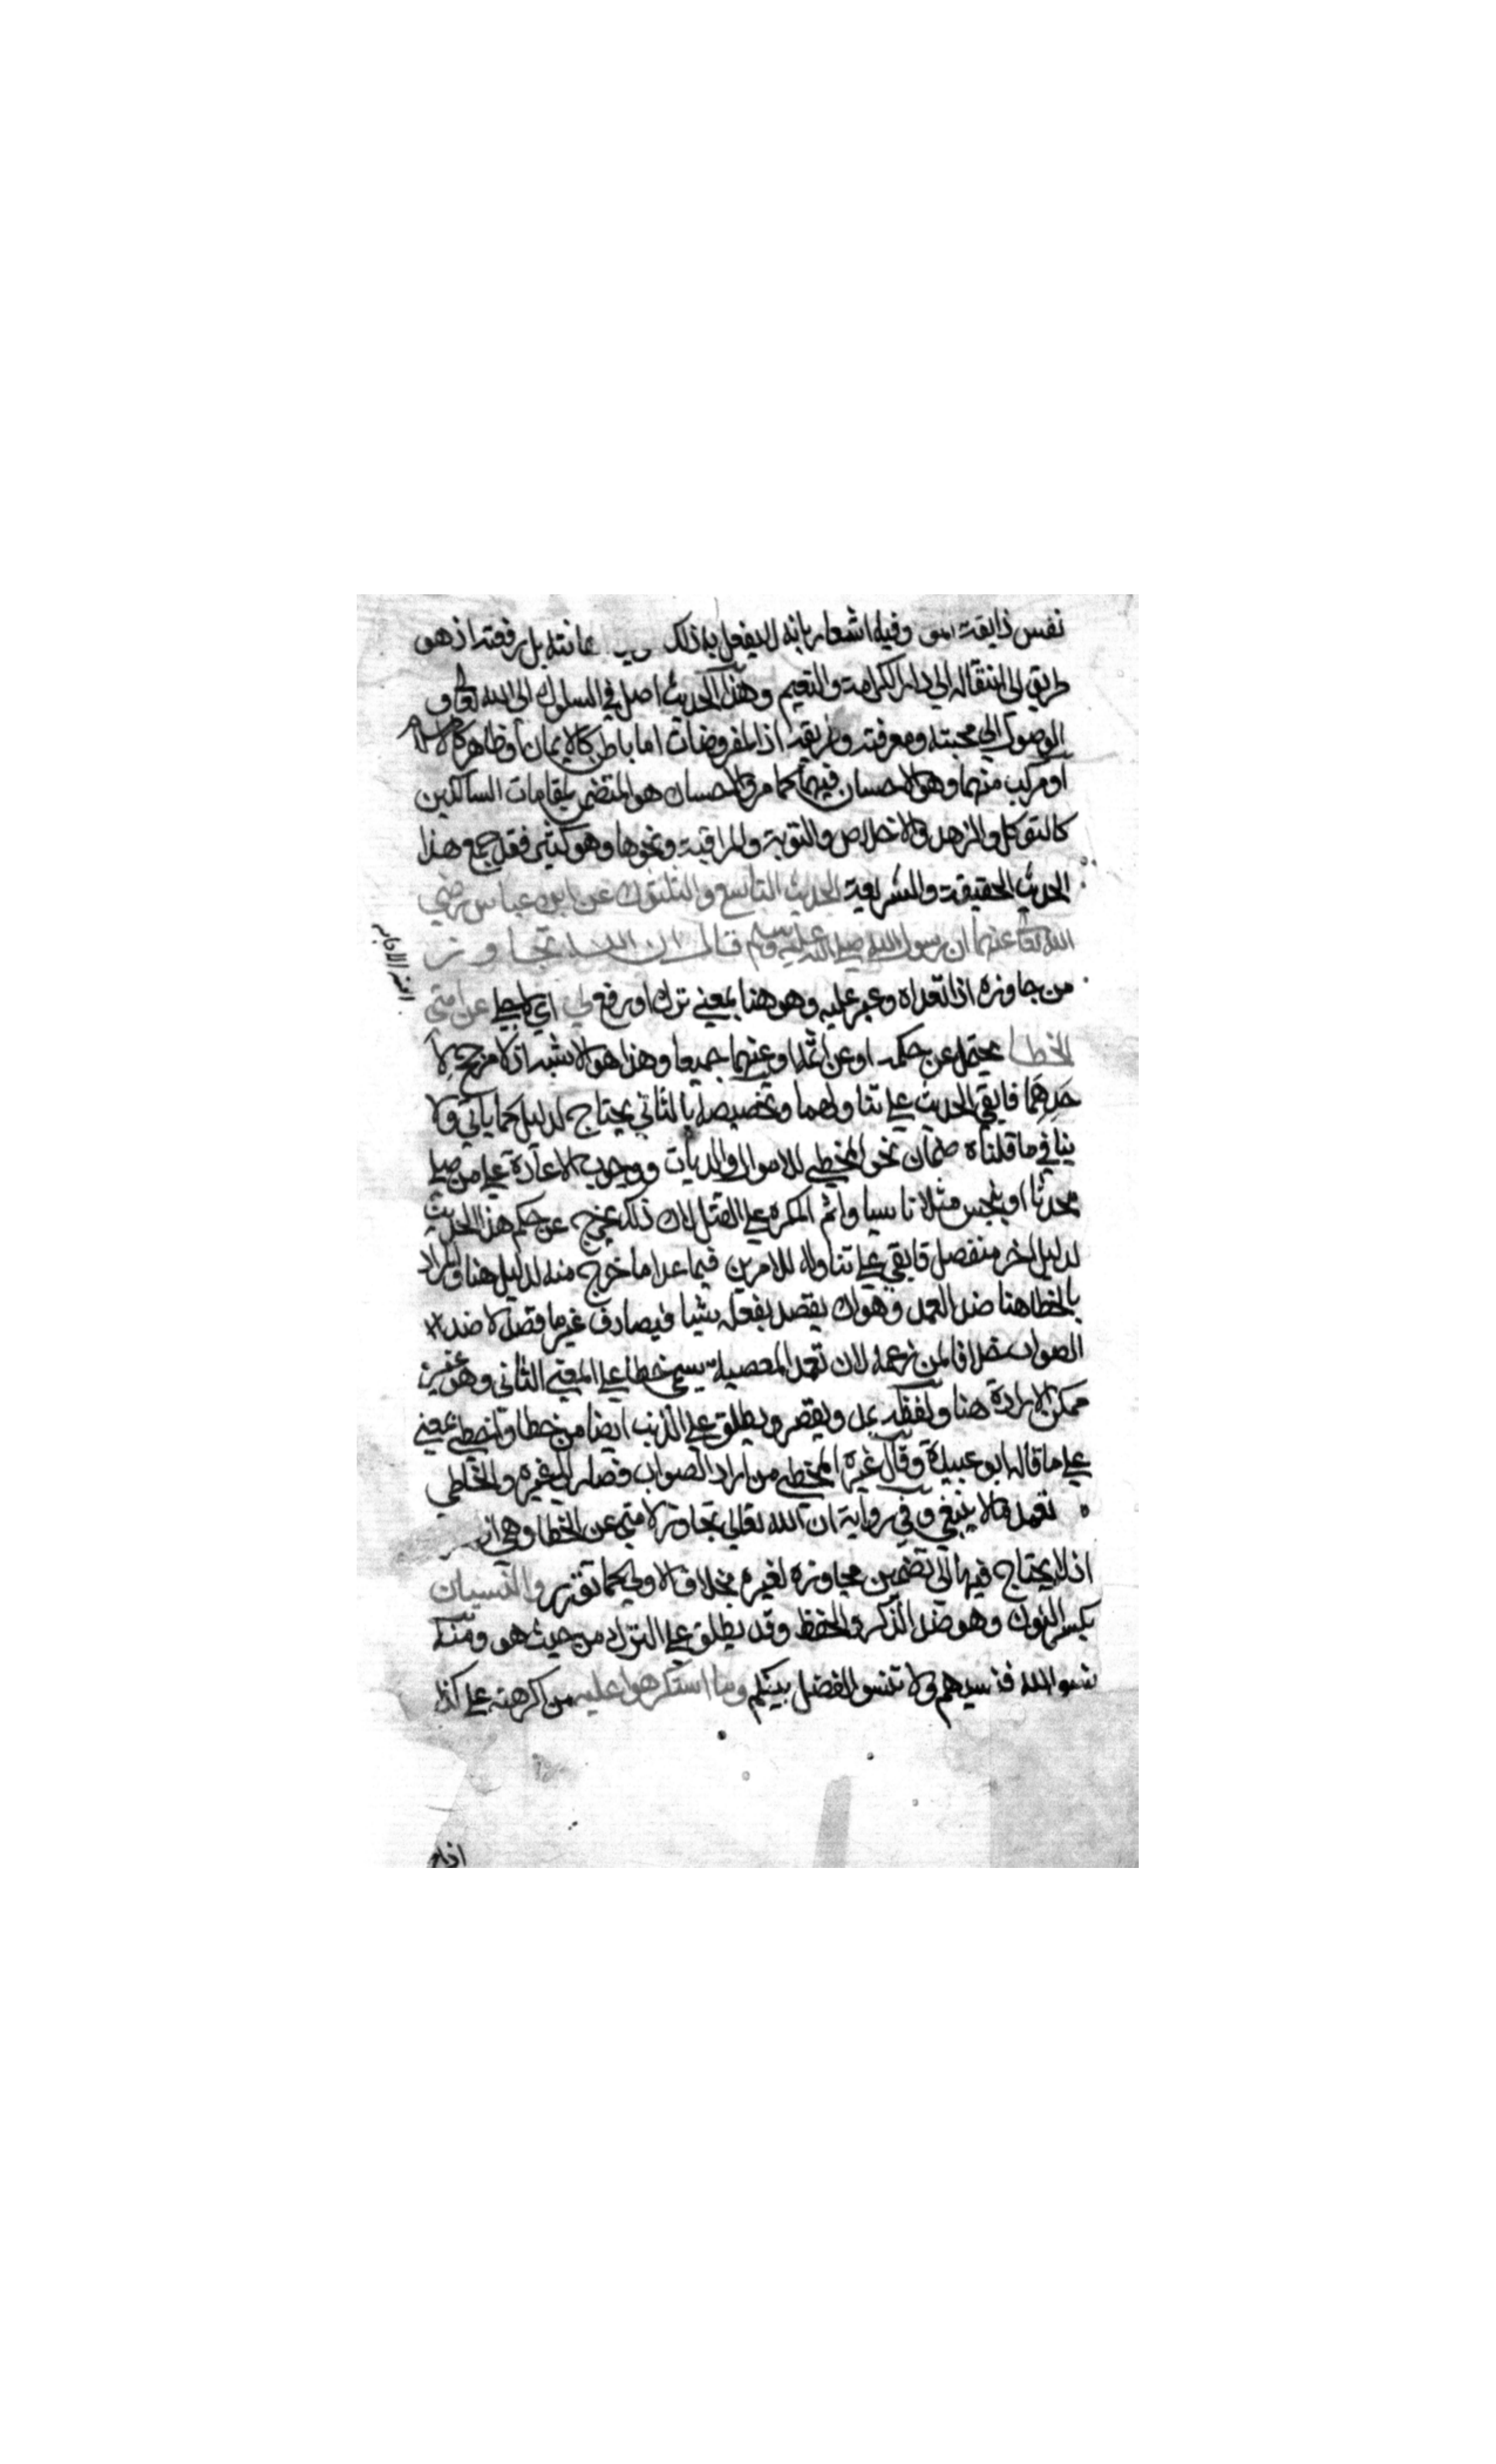 نفس ذايقة الموت وفيه اشعار بانه لا يفعل به ذلك اهانته بل رفعته اذ هو
طريق الى انتقاله الى دار الكرامة والنعيم وهذا الحديث اصل في السلوك الى الله تعالى و
الوصول الى محبته ومعرفته وطريقه اذ المفروضات اما باطن كالايمان او ظاهر كالاسلام
او مركب منهما وهو الاحسان فيهما كما مر والاحسان هو المتضمن لمقامات السالكين
كالتوكل والزهد والاخلاص والتوبة والمراقبة ونحوها وهو كثير فقد جمع هذا
الحديث الحقيقة والشريعة الحديث التاسع والثلثون عن ابن عباس رضي
الله تعالى عنهما ان رسول الله صلى الله عليه وسلم قال ان الله تجاوز
من جاوزه اذا تعداه وعبر عليه وهو هنا بمعنى ترك او رفع لي اي لاجلي عن امتي
الخطا يحتمل عن حكمه او عن اثمه او عنهما جميعا وهذا هو الاشبه اذ لا مرجح لا
حدهما فابقي الحديث على تناولهما وتخصيصه بالثاني يحتاج لدليل كما ياتي ولا
ينافي ما قلناه ضمان نحو المخطي للاموال والديات ووجوب الاعادة على من صلى
محدثا او بنجس مثلا ناسيا واثم المكره على القتل لان ذلك خرج عن حكم هذا الحديث
لدليل اخر منفصل فابقي على تناوله للامرين فيما عدا ما خرج منه لدليل هنا والمراد
بالخطا هنا ضد العمد وهو ان يقصد بفعله شيا فيصادف غير ما قصد لا ضد
الصواب خلافا لمن زعمه لان تعمد المعصية يسمى خطا على المعنى الثاني وهو غير
ممكن الارادة هنا ولفظه يمد ويقصر ويطلق على الذنب ايضا من خطا واخطى بمعنى
على ما قاله ابو عبيدة وقال غيره المخطي من اراد الصواب فصار الى غيره والخاطي
تعمد ما لا ينبغي وفي رواية ان الله تعالى تجاوز لامتي عن الخطا وهي
اذ لا يحتاج فيها الى تضمين تجاوزه لغيره بخلاف الاولى كما تقرر والنسيان
بكسر النون وهو ضد الذكر والحفظ وقد يطلق على الترك من حيث هو ومنه
نسوا الله فنسيهم ولا تنسوا الفضل بينكم وما استكرهوا عليه من اكرهته على كذا